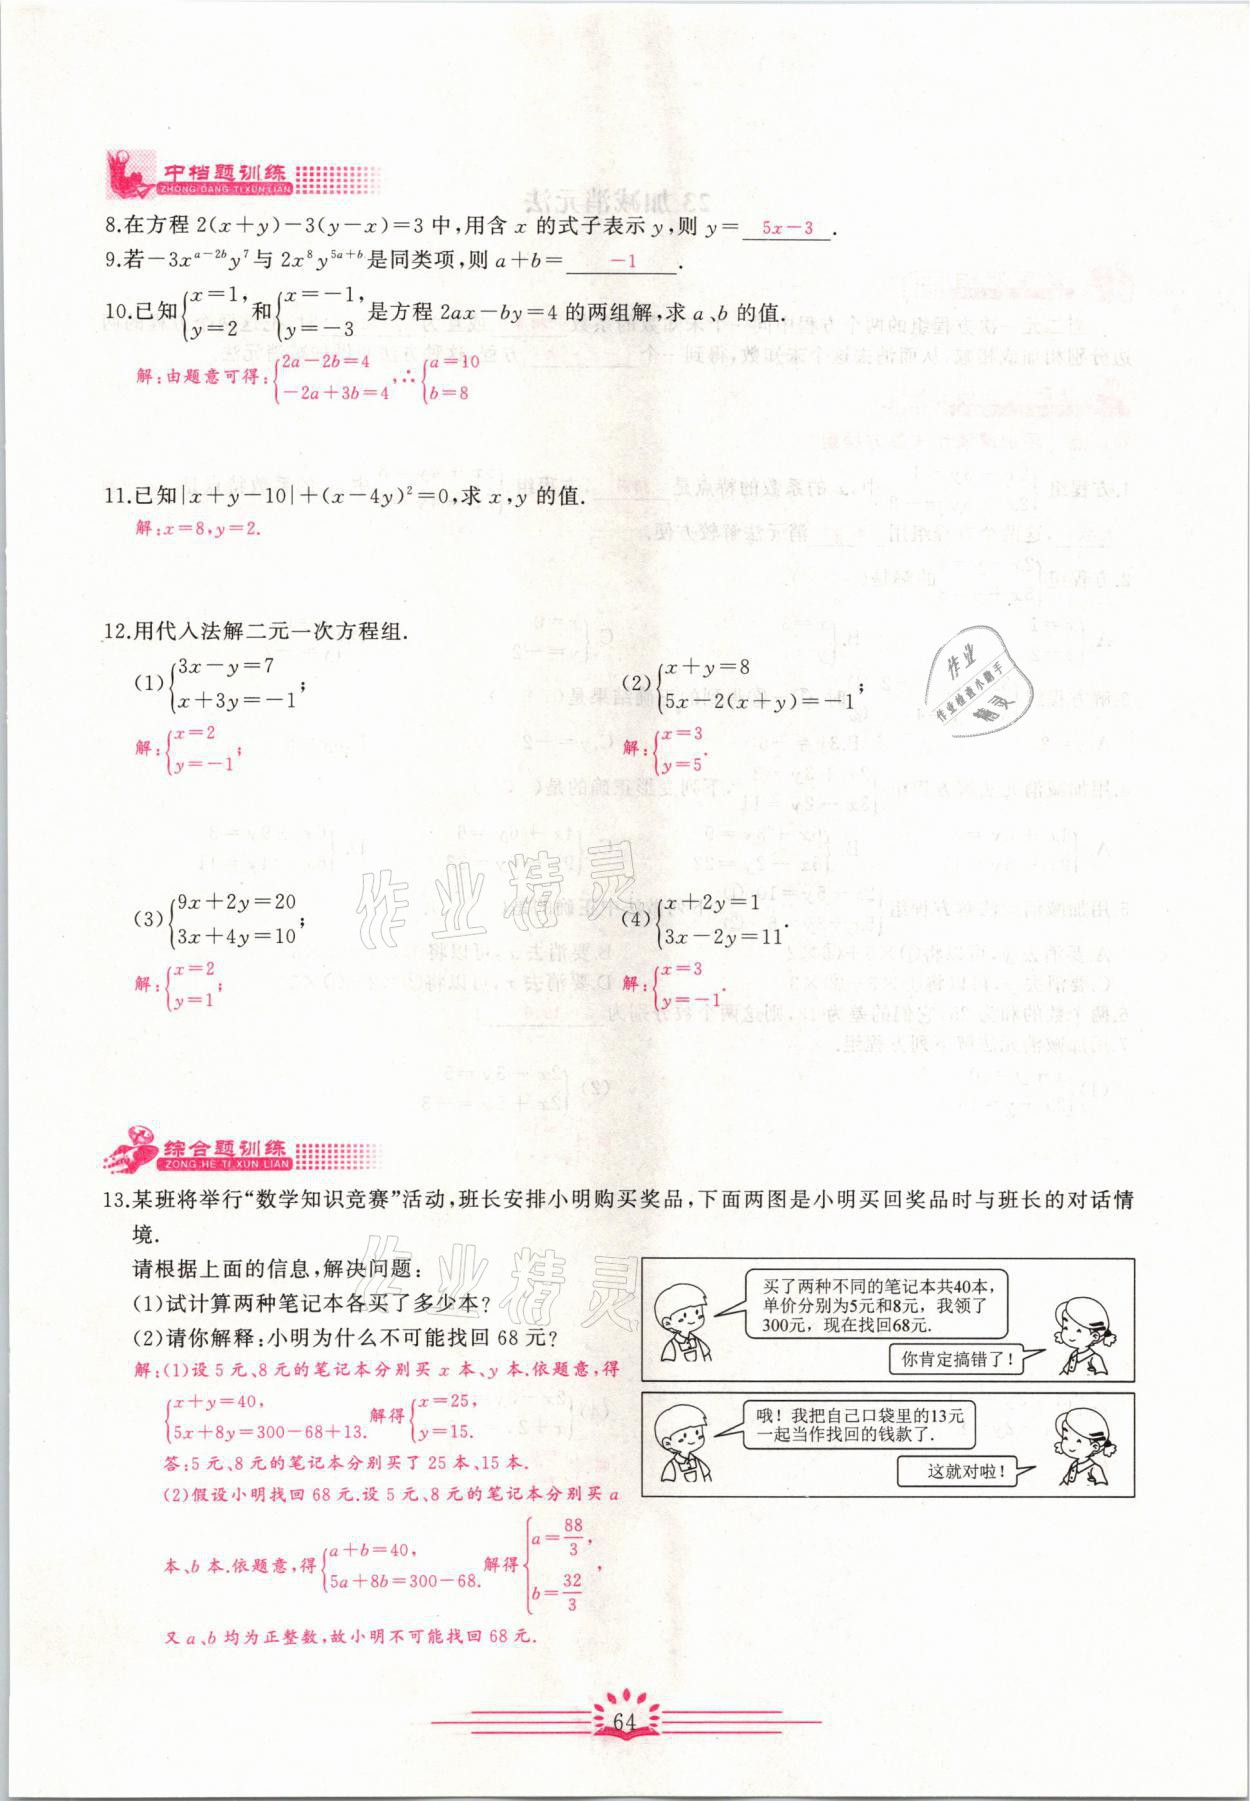 中档题训练
ZHONG DANG TI XUN LIAN
8.在方程 2(x+y)-3(y-x)=3 中,用含 x 的式子表示 y,则 y= 5x-3 .
9.若-3x^{a-2b}y^7与 2x^8y^{5a+b}是同类项,则 a+b= -1 .
10.已知{x=1, y=2 和{x=-1, y=-3 是方程 2ax-by=4 的两组解,求 a、b 的值.
解:由题意可得:{2a-2b=4 -2a+3b=4 ,∴{a=10 b=8
11.已知|x+y-10|+(x-4y)²=0,求 x,y 的值.
解:x=8,y=2.
12.用代入法解二元一次方程组.
(1){3x-y=7 x+3y=-1 ;
(2){x+y=8 5x-2(x+y)=-1 ;
解:{x=2 y=-1 ;
解:{x=3 y=5 .
(3){9x+2y=20 3x+4y=10 ;
(4){x+2y=1 3x-2y=11 .
解:{x=2 y=1 ;
解:{x=3 y=-1 .
综合题训练
ZONG HE TI XUN LIAN
13.某班将举行“数学知识竞赛”活动,班长安排小明购买奖品,下面两图是小明买回奖品时与班长的对话情
境.
请根据上面的信息,解决问题:
(1)试计算两种笔记本各买了多少本?
(2)请你解释:小明为什么不可能找回 68 元?
解:(1)设 5 元、8 元的笔记本分别买 x 本、y 本.依题意,得
{x+y=40, 5x+8y=300-68+13. 解得{x=25, y=15.
答:5 元、8 元的笔记本分别买了 25 本、15 本.
(2)假设小明找回 68 元.设 5 元、8 元的笔记本分别买 a
本、b 本.依题意,得{a+b=40, 5a+8b=300-68. 解得{a=88/3, b=32/3 ,
又 a、b 均为正整数,故小明不可能找回 68 元.
买了两种不同的笔记本共40本,
单价分别为5元和8元，我领了
300元，现在找回68元.
你肯定搞错了！
哦！我把自己口袋里的13元
一起当作找回的钱款了.
这就对啦！
64
作业
作业检查小助手
精灵
作业精灵
作业精灵